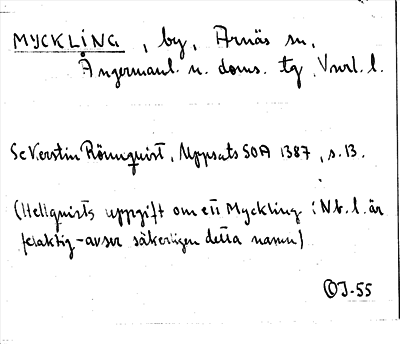 MYCKLING, by, Arnäs sn,
Ångermanl. n. doms. tg, Vnrl. l.
Se Kerstin Rönnquist, Uppsats SOA 1387, s. 13.
(Hellquists uppgift om ett Myckling i Nb. l. är
felaktig - avser säkerligen detta namn)
OJ-55